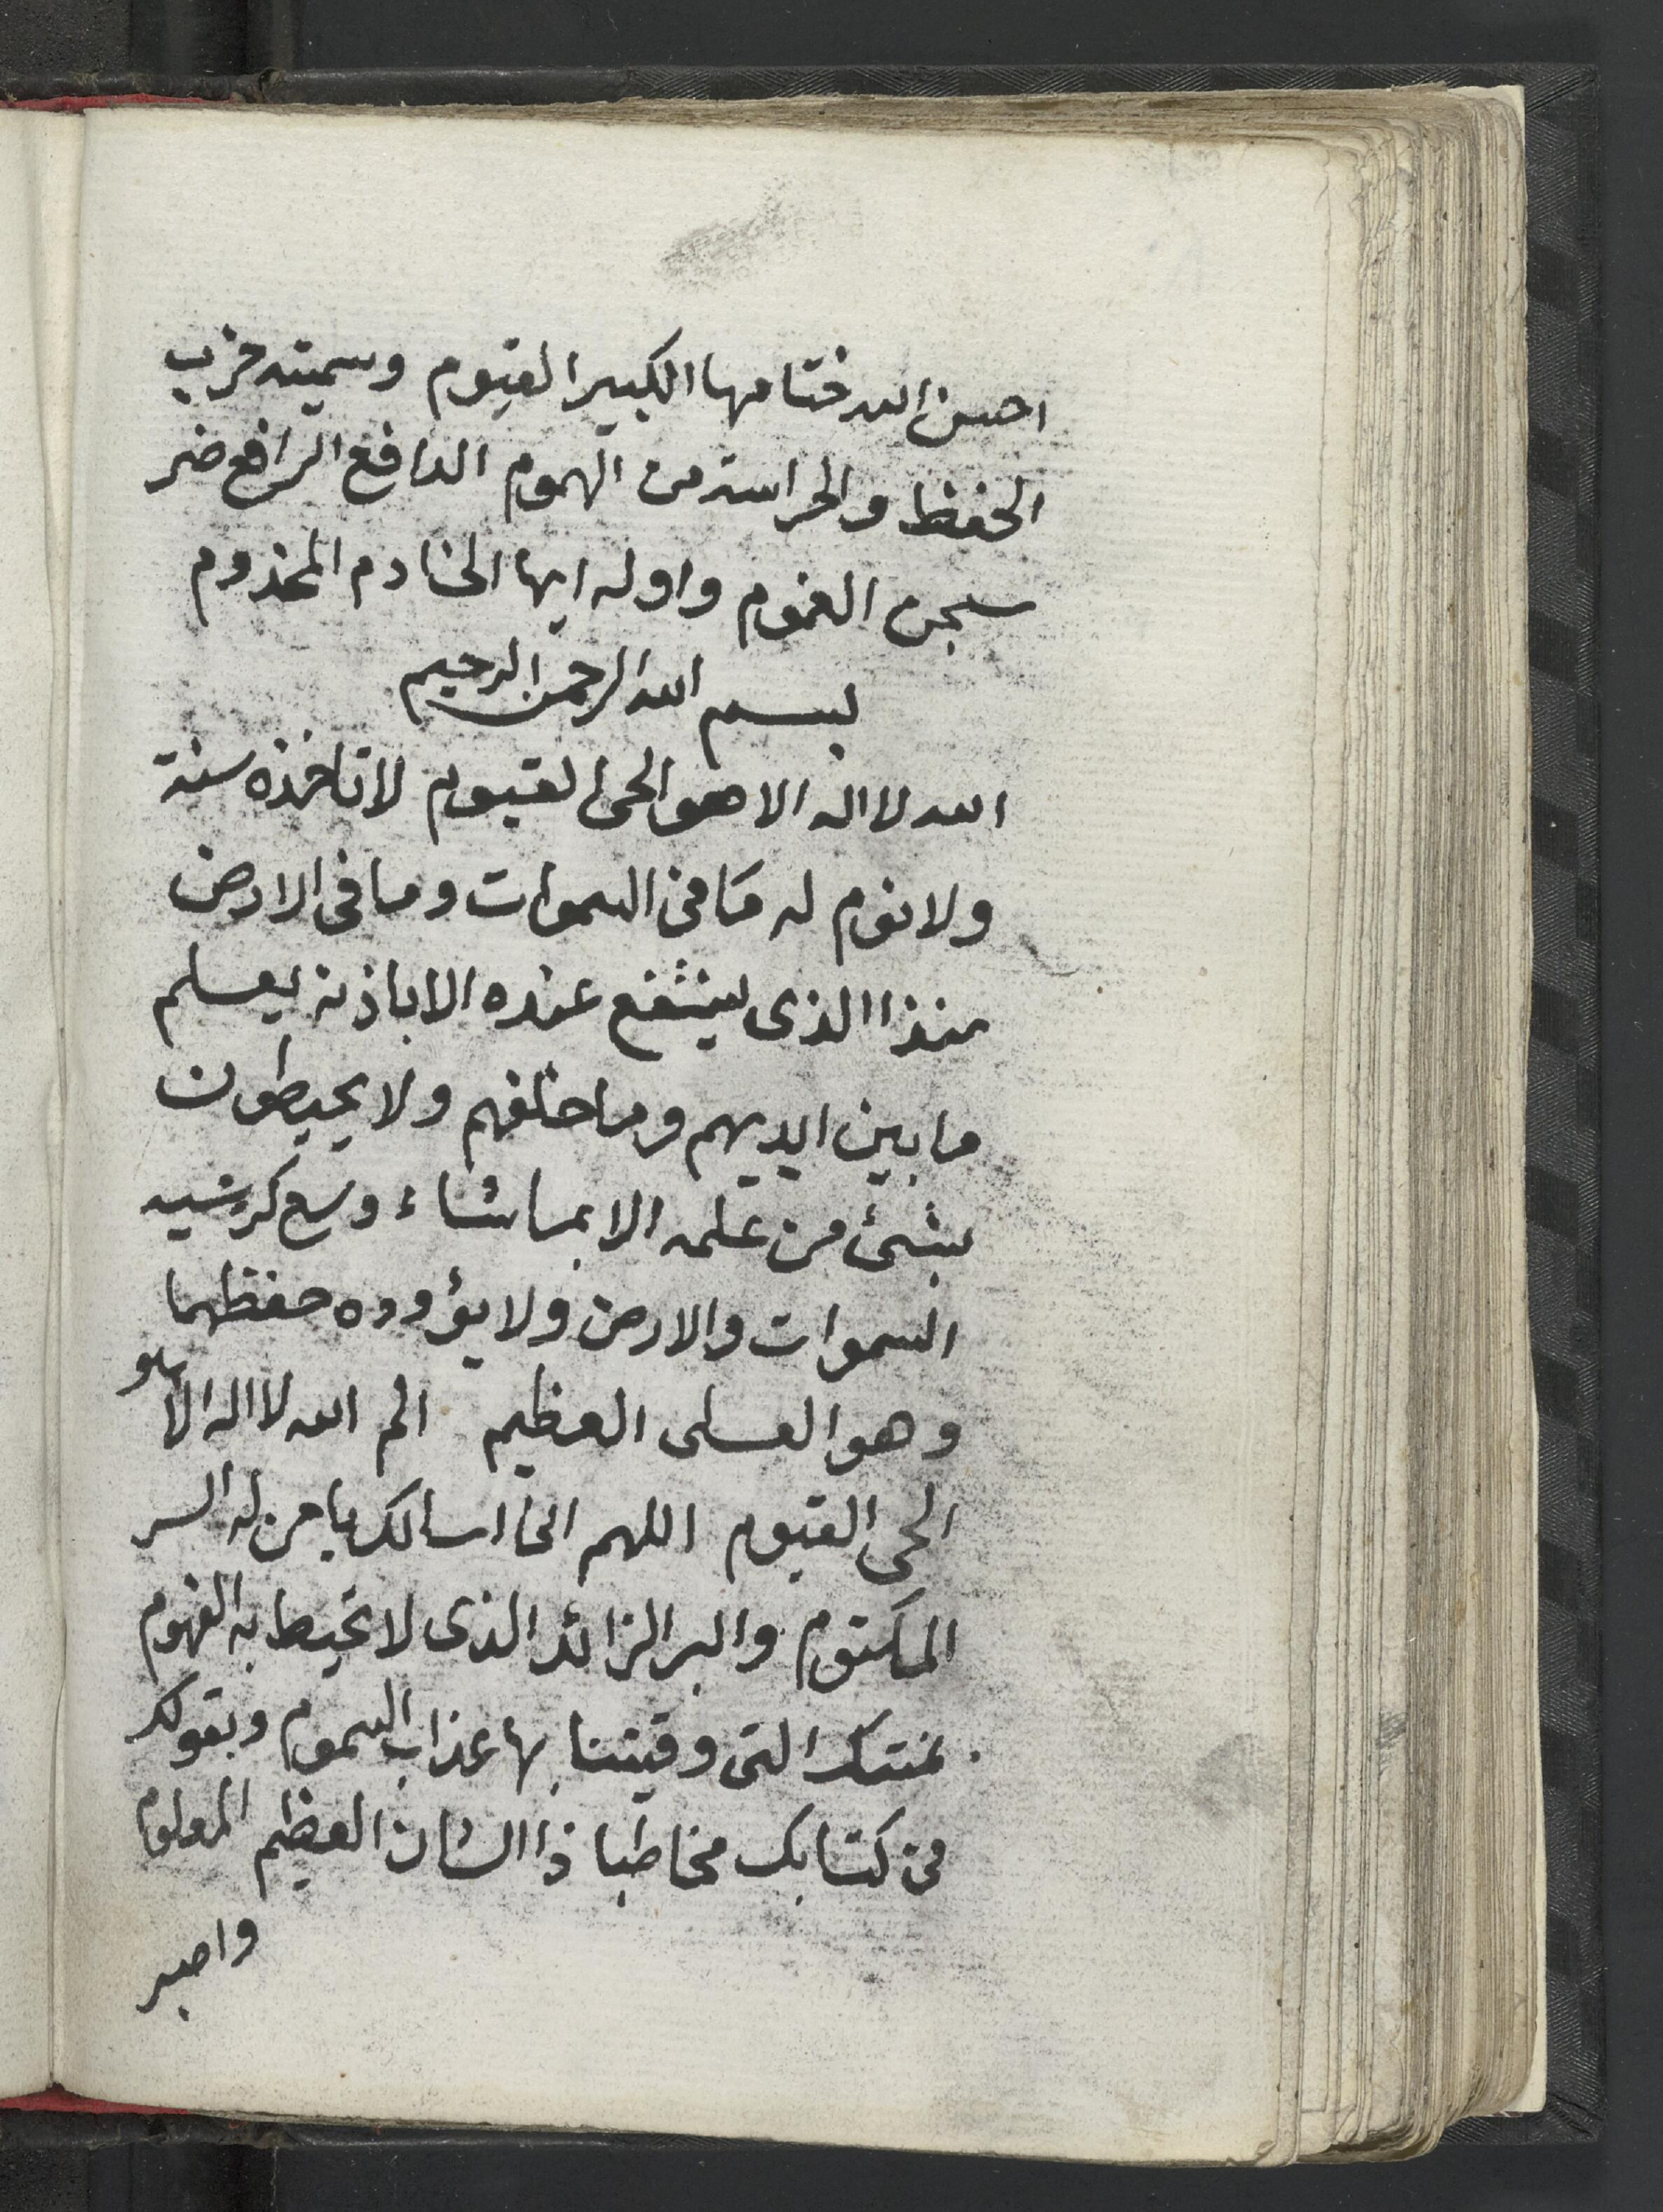 احسن الله ختامها الكبير القيوم وسميته حزب
الحفظ والحراسة من الهموم الدافع الرافع ضر
سجن الغموم واوله ايها الخادم المخذوم
بسم الله الرحمن الرحيم
الله لا اله الا هو الحى القيوم لا تاخذه سنة
ولا نوم له ما فى السموات وما فى الارض
منذا الذى يشفع عنده الا باذنه يعلم
ما بين ايديهم وما خلفهم ولا يحيطون
بشئ من علمه الا بما شاء وسع كرسيه
السموات والارض ولا يؤوده حفظهما
وهو العلى العظيم الم الله لا اله الا هو
الحى القيوم اللهم انى اسالك يا من له السر
المكتوم والبر الزائد الذى لا تحيط به الفهوم
بمنتك التى وقيتنا بها عذاب السموم وبقولك
فى كتابك مخاطبا ذا الشان العظيم المعلوم
واصبر